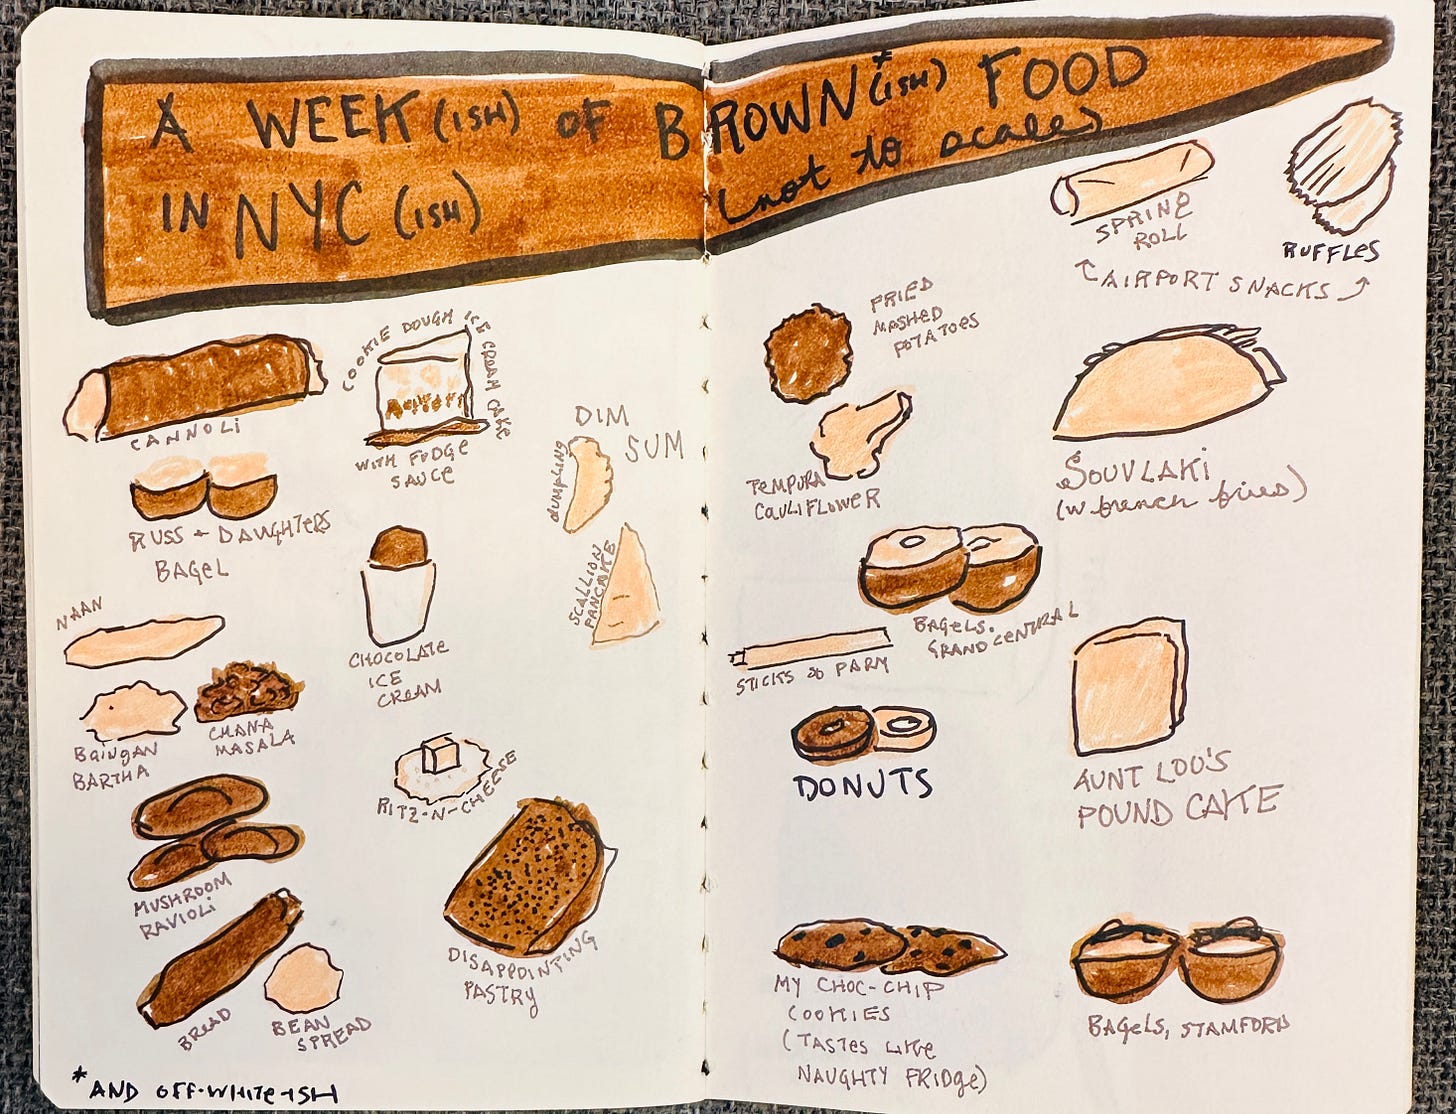 A WEEK (ISH) OF BROWN* (ISH) FOOD
IN NYC (ISH)
(not to scale)
CANNOLI
COOKIE DOUGH ICE CREAM CAKE
WITH FUDGE
SAUCE
RUSS + DAUGHTERS
BAGEL
DIM
SUM
DUMPLING
SCALLION
PANCAKE
NAAN
BAINGAN
BARTHA
CHANA
MASALA
CHOCOLATE
ICE
CREAM
RITZ-N-CHEESE
MUSHROOM
RAVIOLI
BREAD
BEAN
SPREAD
DISAPPOINTING
PASTRY
*AND OFF-WHITE-ISH
SPRING
ROLL
RUFFLES
AIRPORT SNACKS
FRIED
MASHED
POTATOES
TEMPURA
CAULIFLOWER
SOUVLAKI
(w french fries)
BAGELS,
GRAND CENTRAL
STICKS
PARM
DONUTS
AUNT LOU'S
POUND CAKE
MY CHOC-CHIP
COOKIES
(TASTES LIKE
NAUGHTY FRIDGE)
BAGELS, STAMFORD